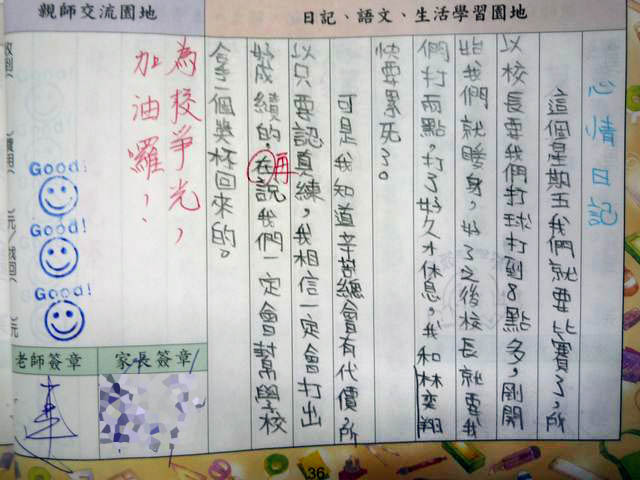 日記、語文、生活學習園地
親師交流園地
心情日記
這個星期五我們就要比賽了,所
以校長要我們打球打到8點多,剛開
始我們就暖身,好了之後校長就要我
們打兩點,打了好久才休息,我和林奕翔
快要累死了。
可是我知道辛苦總會有代價所
以只要認真練,我相信一定會打出
好成績的,在說我們一定會幫學校
再
拿一個獎杯回來的。
為校爭光,
加油囉!
Good!
Good!
Good!
家長簽章
老師簽章
36